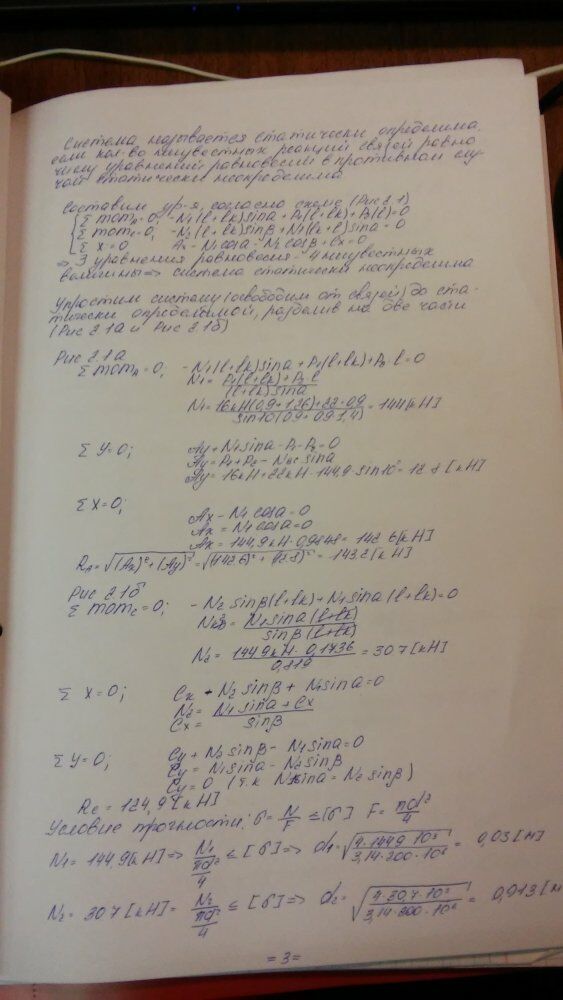 Система называется статически определима,
если кол-во неизвестных реакций связей равно
числу уравнений равновесия в противном слу-
чай статически неопределима
Составим ур-я, согласно схеме (Рис 2.1)
{Σ mom_A=0; -N₁(l+lk)sina+P₁(l+lk)+P₂(l)=0
Σ mom_c=0; -N₂(l+lk)sinβ+N₁(lk+l)sina=0
Σ x=0 Ax-N₁cosa-N₂cosβ+Cx=0
⇒ 3 уравнения равновесия - 4 неизвестных
величины ⇒ система статически неопределима
Упростим систему (освободим от связей) до ста-
тически определимой, разделив на две части
(Рис 2.1а и Рис 2.1б)
Рис 2.1а
Σ mom_A=0; -N₁(l+lk)sina+P₁(l+lk)+P₂·l=0
N₁= P₁(l+lk)+P₂·l / (l+lk)sina
N₁= 16кН(0,9+1,26)+22·0,9 / sin10(0,9+0,9·1,4) = 144[кН]
Σ Y=0; Ay+N₁sina-P₁-P₂=0
Ay=P₁+P₂-N₁·sina
Ay=16кН+22кН-144,9·sin10°=12,8[кН]
Σ X=0; Ax-N₁cosa=0
Ax=N₁cosa=0
Ax=144,9кН·0,9848=142,6[кН]
R_A=√(Ax)²+(Ay)²=√(142,6)²+(12,8)²=143,2[кН]
Рис 2.1б
Σ mom_c=0; -N₂sinβ(l+lk)+N₁sina(l+lk)=0
N₂= N₁sina(l+lk) / sinβ(l+lk)
N₂= 144,9кН·0,1736 / 0,819 = 30,7[кН]
Σ X=0; Cx-N₂sinβ+N₁sina=0
N₂= N₁sina+Cx / sinβ
Cx=
Σ Y=0; Cy+N₂sinβ-N₁sina=0
Cy=N₁sina-N₂sinβ
Cy=0 (т.к N₁sina=N₂sinβ)
Rc=124,9[кН]
Условие прочности: σ=N/F≤[σ] F=πd²/4
N₁=144,9[кН]⇒ N₁/(πd²/4) ≤[σ]⇒ d₁=√(4·144,9·10³/3,14·200·10⁶) = 0,03[м]
N₂=30,7[кН]= N₂/(πd²/4) ≤[σ]⇒ d₂=√(4·30,7·10³/3,14·200·10⁶) = 0,013[м
=3=